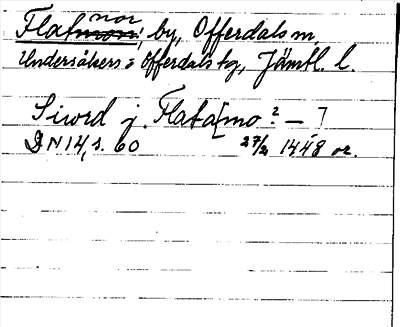 Flatnor, by, Offerdals sn,
Undersåkers o Offerdals tg, Jämtl. l.
Siord j. Flata[mo ? – ]
DN 14, s. 60 27/2 1448 or.